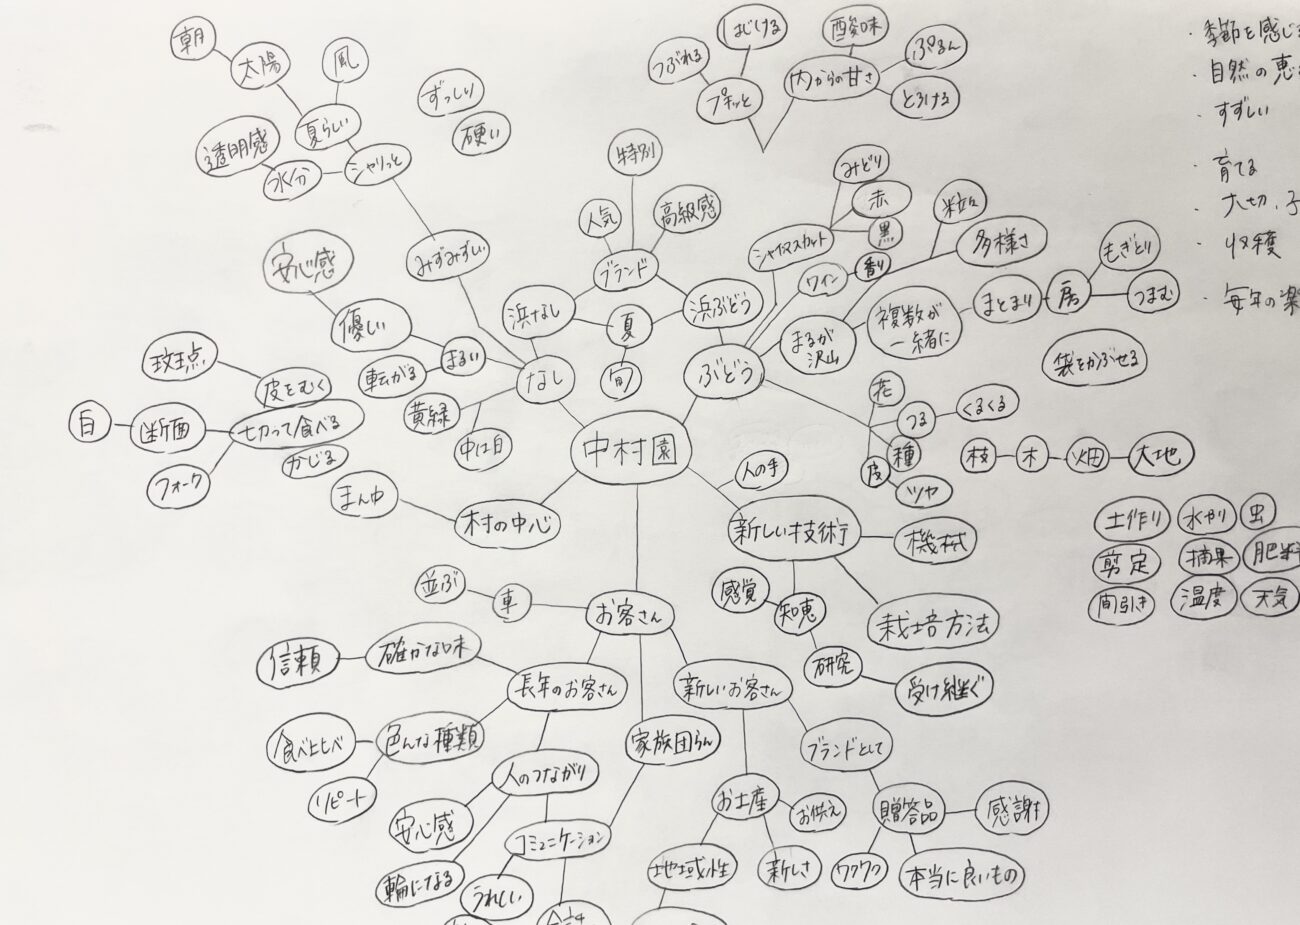 朝
太陽
風
夏らしい
透明感
水分
シャリっと
ずっしり
硬い
つぶれる
はじける
プチッと
酸味
内からの甘さ
ぷるん
とろける
特別
人気
高級感
ブランド
浜なし
浜ぶどう
夏
旬
安心感
みずみずしい
優しい
転がる
まるい
黄緑
中は白
なし
ぶどう
みどり
赤
黒
シャインマスカット
ワイン
香り
粒
多様さ
まるが
沢山
複数が
一緒に
まとまり
房
もぎとり
つまむ
袋をかぶせる
皮をむく
白
断面
切って食べる
かじる
フォーク
中村園
花
つる
くるくる
種
皮
ツヤ
枝
木
畑
大地
まん中
村の中心
人の手
新しい技術
機械
感覚
知恵
栽培方法
研究
受け継ぐ
土作り
水やり
虫
剪定
摘果
肥料
間引き
温度
天気
並ぶ
車
お客さん
信頼
確かな味
長年のお客さん
新しいお客さん
食べ比べ
色んな種類
リピート
家族団らん
ブランドとして
人のつながり
安心感
コミュニケーション
輪になる
うれしい
お土産
お供え
地域性
新しさ
贈答品
感謝
ワクワク
本当に良いもの
・季節を感じ
・自然の恵
・すずしい
・育てる
・大切、子
・収穫
・毎年の楽